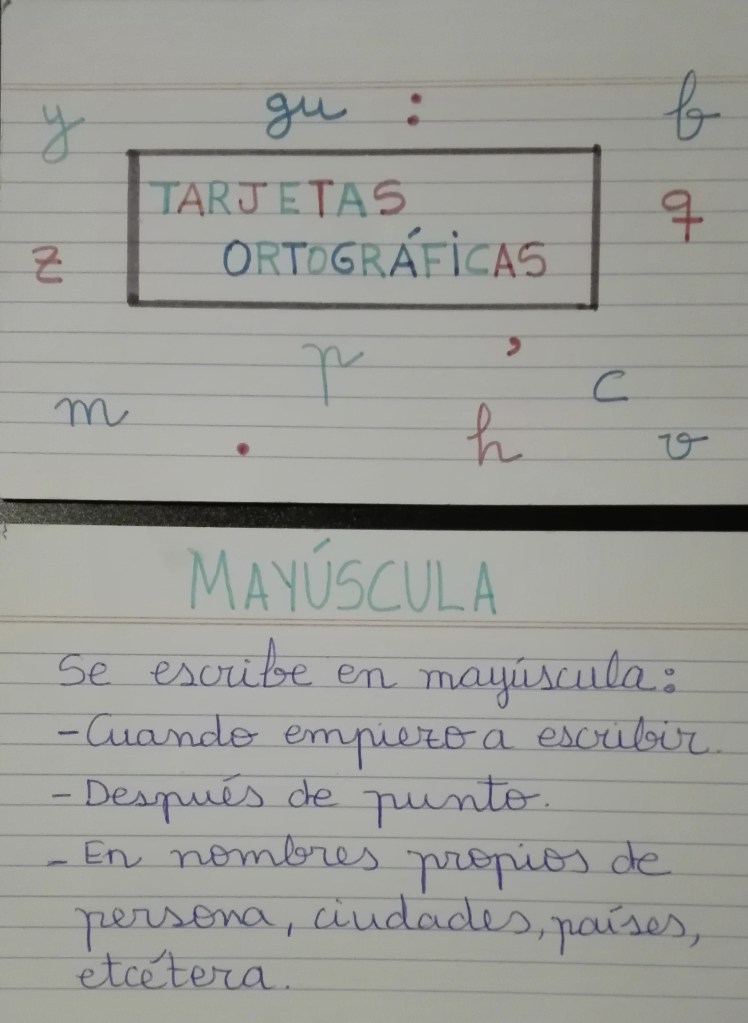 y gu : b
TARJETAS
ORTOGRÁFICAS
q
z
p ,
c
m . h v
MAYÚSCULA
Se escribe en mayúscula:
-Cuando empiezo a escribir.
- Después de punto.
- En nombres propios de
persona, ciudades, países,
etcétera.